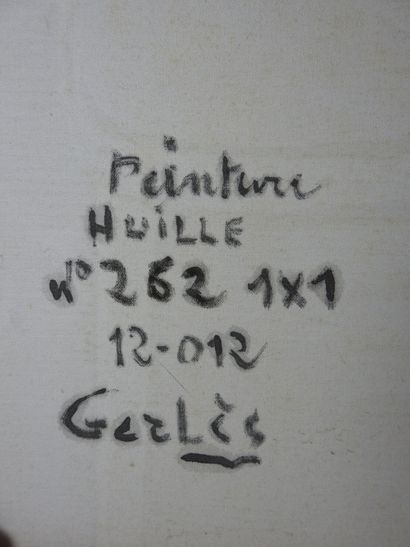 Peinture
HUILLE
n° 262 1x1
12-012
GerLès